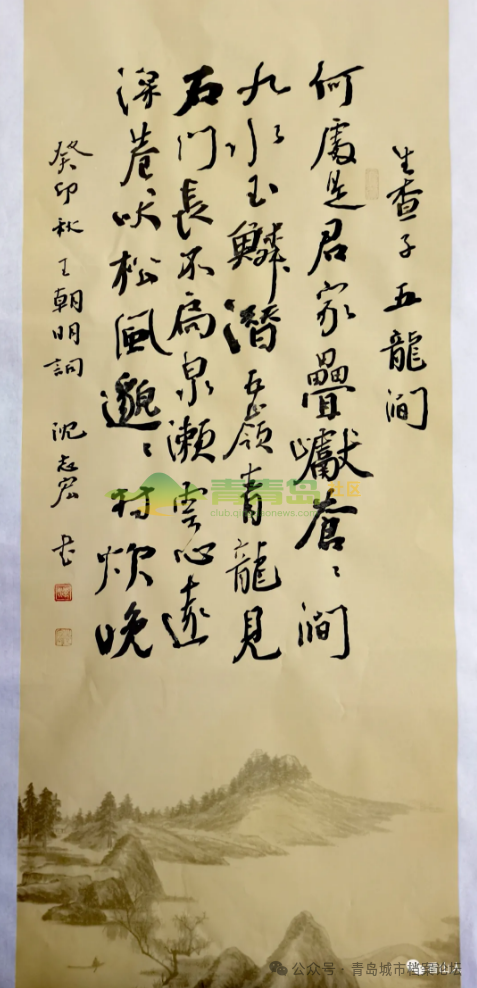 生查子 五龍澗
何處是君家疊巘蒼〻澗
九水玉鱗潛五嶺青龍見
石門長不扃泉瀨雲心遠
深巷吠松風邈〻村炊晚
癸卯秋 王朝明詞 沈志宏 书
青青岛社区
club.qingdaonews.com
公众号·青岛城市档案论坛